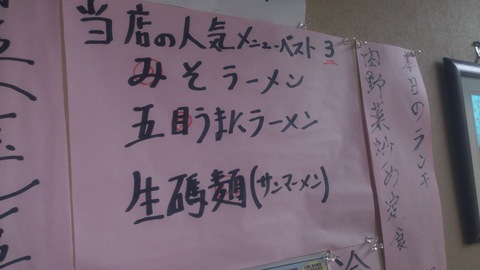 当店の人気メニューベスト3
みそラーメン
五目うまにラーメン
生碼麺(サンマーメン)
本日のランチ
肉野菜炒め定食